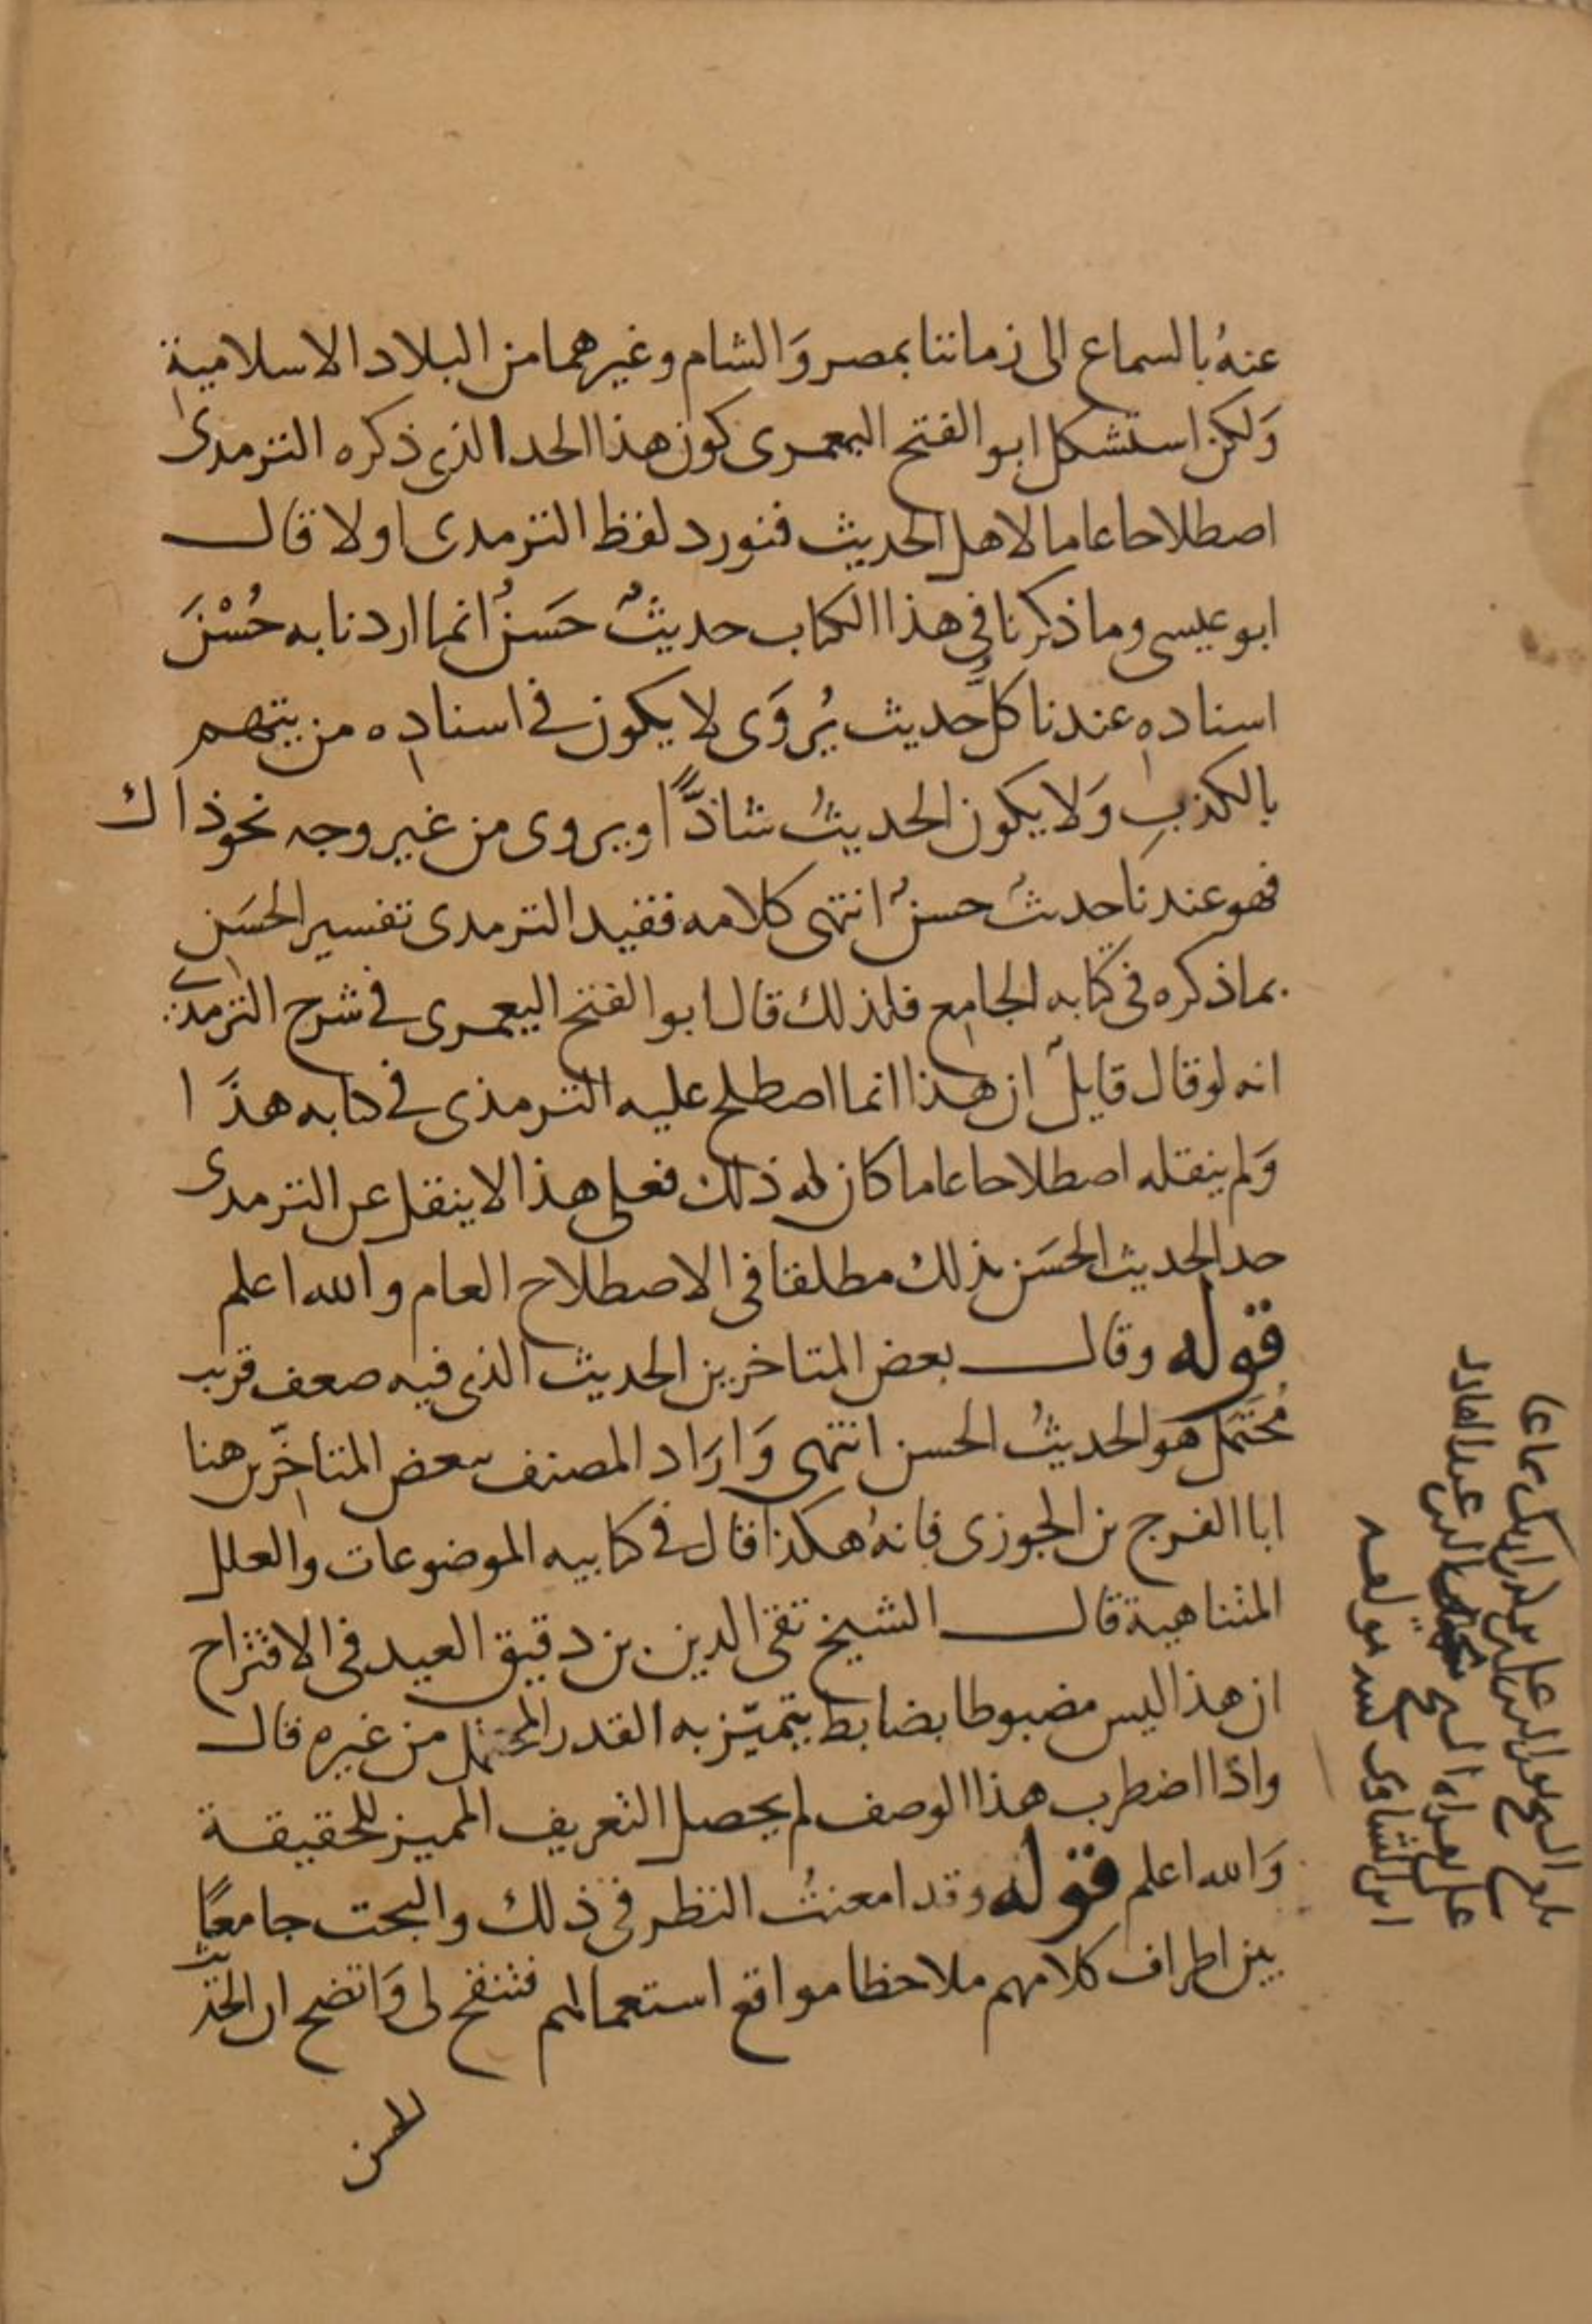 عنهُ بالسماع الى زماننا بمصر وَالشام وغيرهما من البلاد الاسلامية
وَلكن استشكل ابو الفتح اليعمرى كون هذا الحد الذي ذكره الترمدى
اصطلاحا عاما لاهل الحديث فنورد لفظ الترمدى اولا قال
ابو عيسى وما ذكرنا في هذا الكتاب حديثٌ حَسَنٌ انما اردنا به حُسْنَ
اسناده عندنا كلُّ حديث يُروَى لا يكون في اسناده من يتهم
بالكذبِ وَلا يكون الحديثُ شاذًّا ويروى من غير وجه نحو ذاك
فهو عندنا حدىثٌ حسنٌ انتهى كلامه فقيد الترمدى تفسير الحَسَن
بما ذكره فى كتابه الجامع فلذلك قال ابو الفتح اليعمرى في شرح الترمدى
انه لو قال قايلٌ ان هذا انما اصطلح عليه الترمذى في كتابه هذَا
وَلم ينقله اصطلاحا عاما كان له ذلك فعلى هذا لا ينقل عن الترمدى
حد الحديث الحَسَن بذلك مطلقا فى الاصطلاح العام والله اعلم
قوله وقال بعض المتاخرين الحديث الذى فيه ضعف قريب
مُحتَمَل هو الحديثُ الحسن انتهى وَارَاد المصنف ببعض المتاخّرين هنا
ابا الفرج بن الجوزى فانهُ هكذا قال في كتابيه الموضوعات والعلل
المتناهية قال الشيخ تقى الدين بن دقيق العيد فى الاقتراح
ان هذا ليس مضبوطا بضابط يتميّز به القدر المحتمل من غيره قال
واذا اضطرب هذا الوصف لم يحصل التعريف المميز للحقيقة
وَالله اعلم قوله وقد امعنتُ النظر فى ذلك والبحث جامعًا
بين اطراف كلامهم ملاحظا مواقع استعمالهم فتنقح لى وَاتضح ان الحديث